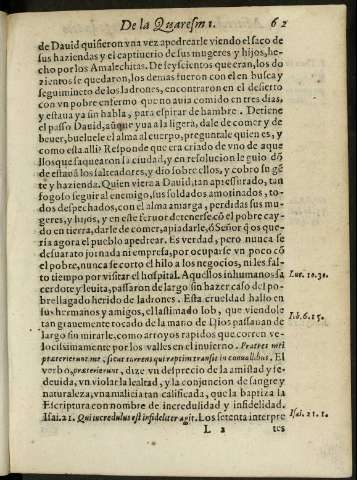 De la Quaresma. 62
de Dauid quisieron vna vez apedrearle viendo el saco de
sus haziendas y el captiuerio de sus mugeres y hijos, he-
cho por los Amalechitas. De seyscientos que eran, los do
zientos se quedaron, los demas fueron con el en busca y
seguimiento de los ladrones, encontraron en el desierto
con vn pobre enfermo que no auia comido en tres dias,
y estaua ya sin habla, para espirar de hambre. Detiene
el passo Dauid, aũque yua a la ligera, dale de comer y de
beuer, bueluele el alma al cuerpo, preguntale quien es, y
como esta alli? Responde que era criado de vno de aque
llos que saquearon la ciudad, y en resolucion le guio dõ
de estauã los salteadores, y dio sobre ellos, y cobro su gẽ
te y hazienda. Quien viera a Dauid, tan apressurado, tan
fogoso seguir al enemigo, sus soldados amotinados, to-
dos despechados, con el alma amarga, perdidas sus mu-
geres, y hijos, y en este feruor detenerse cõ el pobre cay-
do en tierra, darle de comer, apiadarle, ô Señor q̃ os que-
ria agora el pueblo apedrear. Es verdad, pero nunca se
desuarato jornada ni empresa, por ocuparse vn poco cõ
el pobre, nunca se corto el hilo a los negocios, ni les fal-
to tiempo por visitar el hospital. Aquellos inhumanos sa
cerdote y leuita, passaron de largo sin hazer caso del po-
bre llagado herido de ladrones. Esta crueldad hallo en
sus hermanos y amigos, el lastimado Iob, que viendole
tan grauemente tocado de la mano de Dios passauan de
largo sin mirarle, como arroyos rapidos que corren ve-
locissimamente por los valles en el inuierno. Fratres mei
præterierunt me, sicut torrens qui raptim transit in conuallibus. El
verbo, præterierunt, dize vn desprecio de la amistad y fe
deuida, vn violar la lealtad, y la conjuncion de sangre y
naturaleza, vna malicia tan calificada, que la baptiza la
Escriptura con nombre de incredulidad y infidelidad.
Isai. 21. Qui incredulus est infideliter agit. Los setenta interpre
L 2 tes
Luc. 10.30.
Iob. 6.15.
Isai. 21.2.